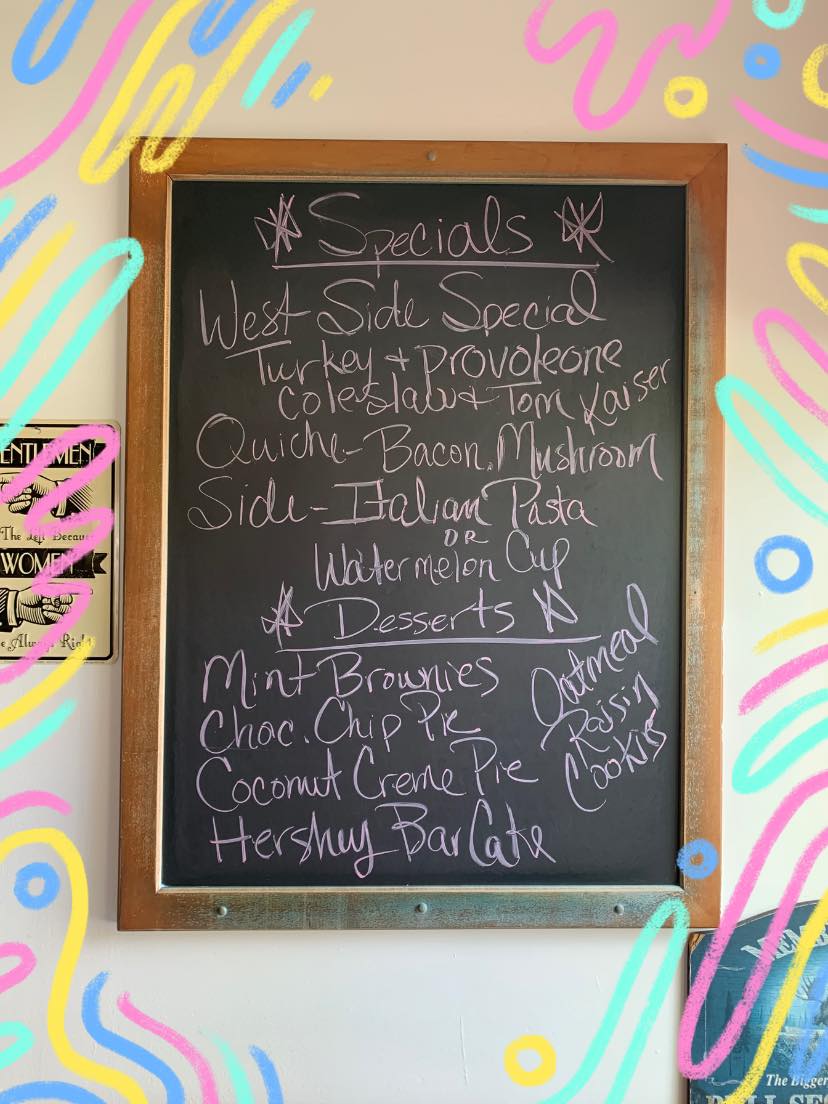 Specials
West Side Special
Turkey + Provoleone
Coleslaw + Tom Kaiser
Quiche - Bacon, Mushroom
Side - Italian Pasta
OR
Watermelon Cup
Desserts
Mint Brownies
Choc. Chip Pie
Coconut Creme Pie
Hershey Bar Cake
Oatmeal
Raisin
Cookies
ENTLEMEN
The Left Becau
WOMEN
e Always Right
MEM
The Bigger